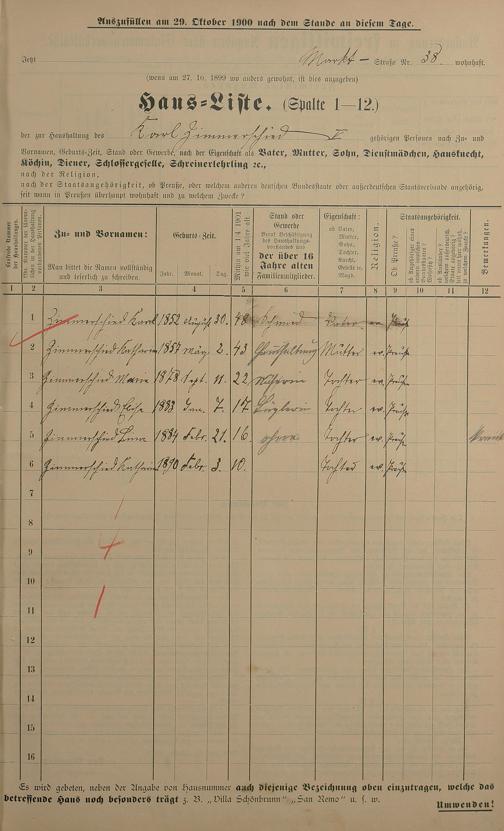 Auszufüllen am 29. Oktober 1900 nach dem Stande an diesem Tage.
Jetzt Markt- Straße Nr. 38. wohnhaft.
(wenn am 27. 10. 1899 wo anders gewohnt, ist dies anzugeben)
Haus-Liste. (Spalte 1—12.)
der zur Haushaltung des Karl Zimmerschied gehörigen Personen nach Zu- und
Vornamen, Geburts-Zeit, Stand oder Gewerbe, nach der Eigenschaft als Vater, Mutter, Sohn, Dienstmädchen, Hausknecht,
Köchin, Diener, Schlossergeselle, Schreinerlehrling ꝛc.,
nach der Religion,
nach der Staatsangehörigkeit, ob Preuße, oder welchem anderen deutschen Bundesstaate oder außerdeutschen Staatsverbande angehörig,
seit wann in Preußen überhaupt wohnhaft und zu welchem Zwecke?
Zu- und Vornamen:
Man bittet die Namen vollständig und leserlich zu schreiben.
Geburts-Zeit.
Jahr. Monat. Tag.
Mithin am 1/4 1901 wie viel Jahre alt
Stand oder Gewerbe
der über 16 Jahre alten Familienmitglieder.
Eigenschaft:
ob Vater, Mutter, Sohn, Tochter, Knecht, Geselle ꝛc. Magd.
Religion.
Staatsangehörigkeit.
Ob Preuße?
Bemerkungen.
1 2 3 4 5 6 7 8 9 10 11 12
1 Zimmerschied Karl 1852 August 30. 48 Schmied Vater ev. Preuße
2 Zimmerschied Katharina 1857 März 2. 43 Haushaltung Mutter ev. Preuße
3 Zimmerschied Marie 1878 Sept. 11. 22 Näherin Tochter ev. Preuße
4 Zimmerschied Elise 1883 Jan. 7. 17 Büglerin Tochter ev. Preuße
5 Zimmerschied Lina 1884 Febr. 21. 16 ohne Tochter ev. Preuße krank
6 Zimmerschied Katharina 1890 Febr. 3. 10. Tochter ev. Preuße
7
8
9
10
11
12
13
14
15
16
Es wird gebeten, neben der Angabe von Hausnummer auch diejenige Bezeichnung oben einzutragen, welche das
betreffende Haus noch besonders trägt z. B. „Villa Schönbrunn" „San Remo" u. s. w.
Umwenden!